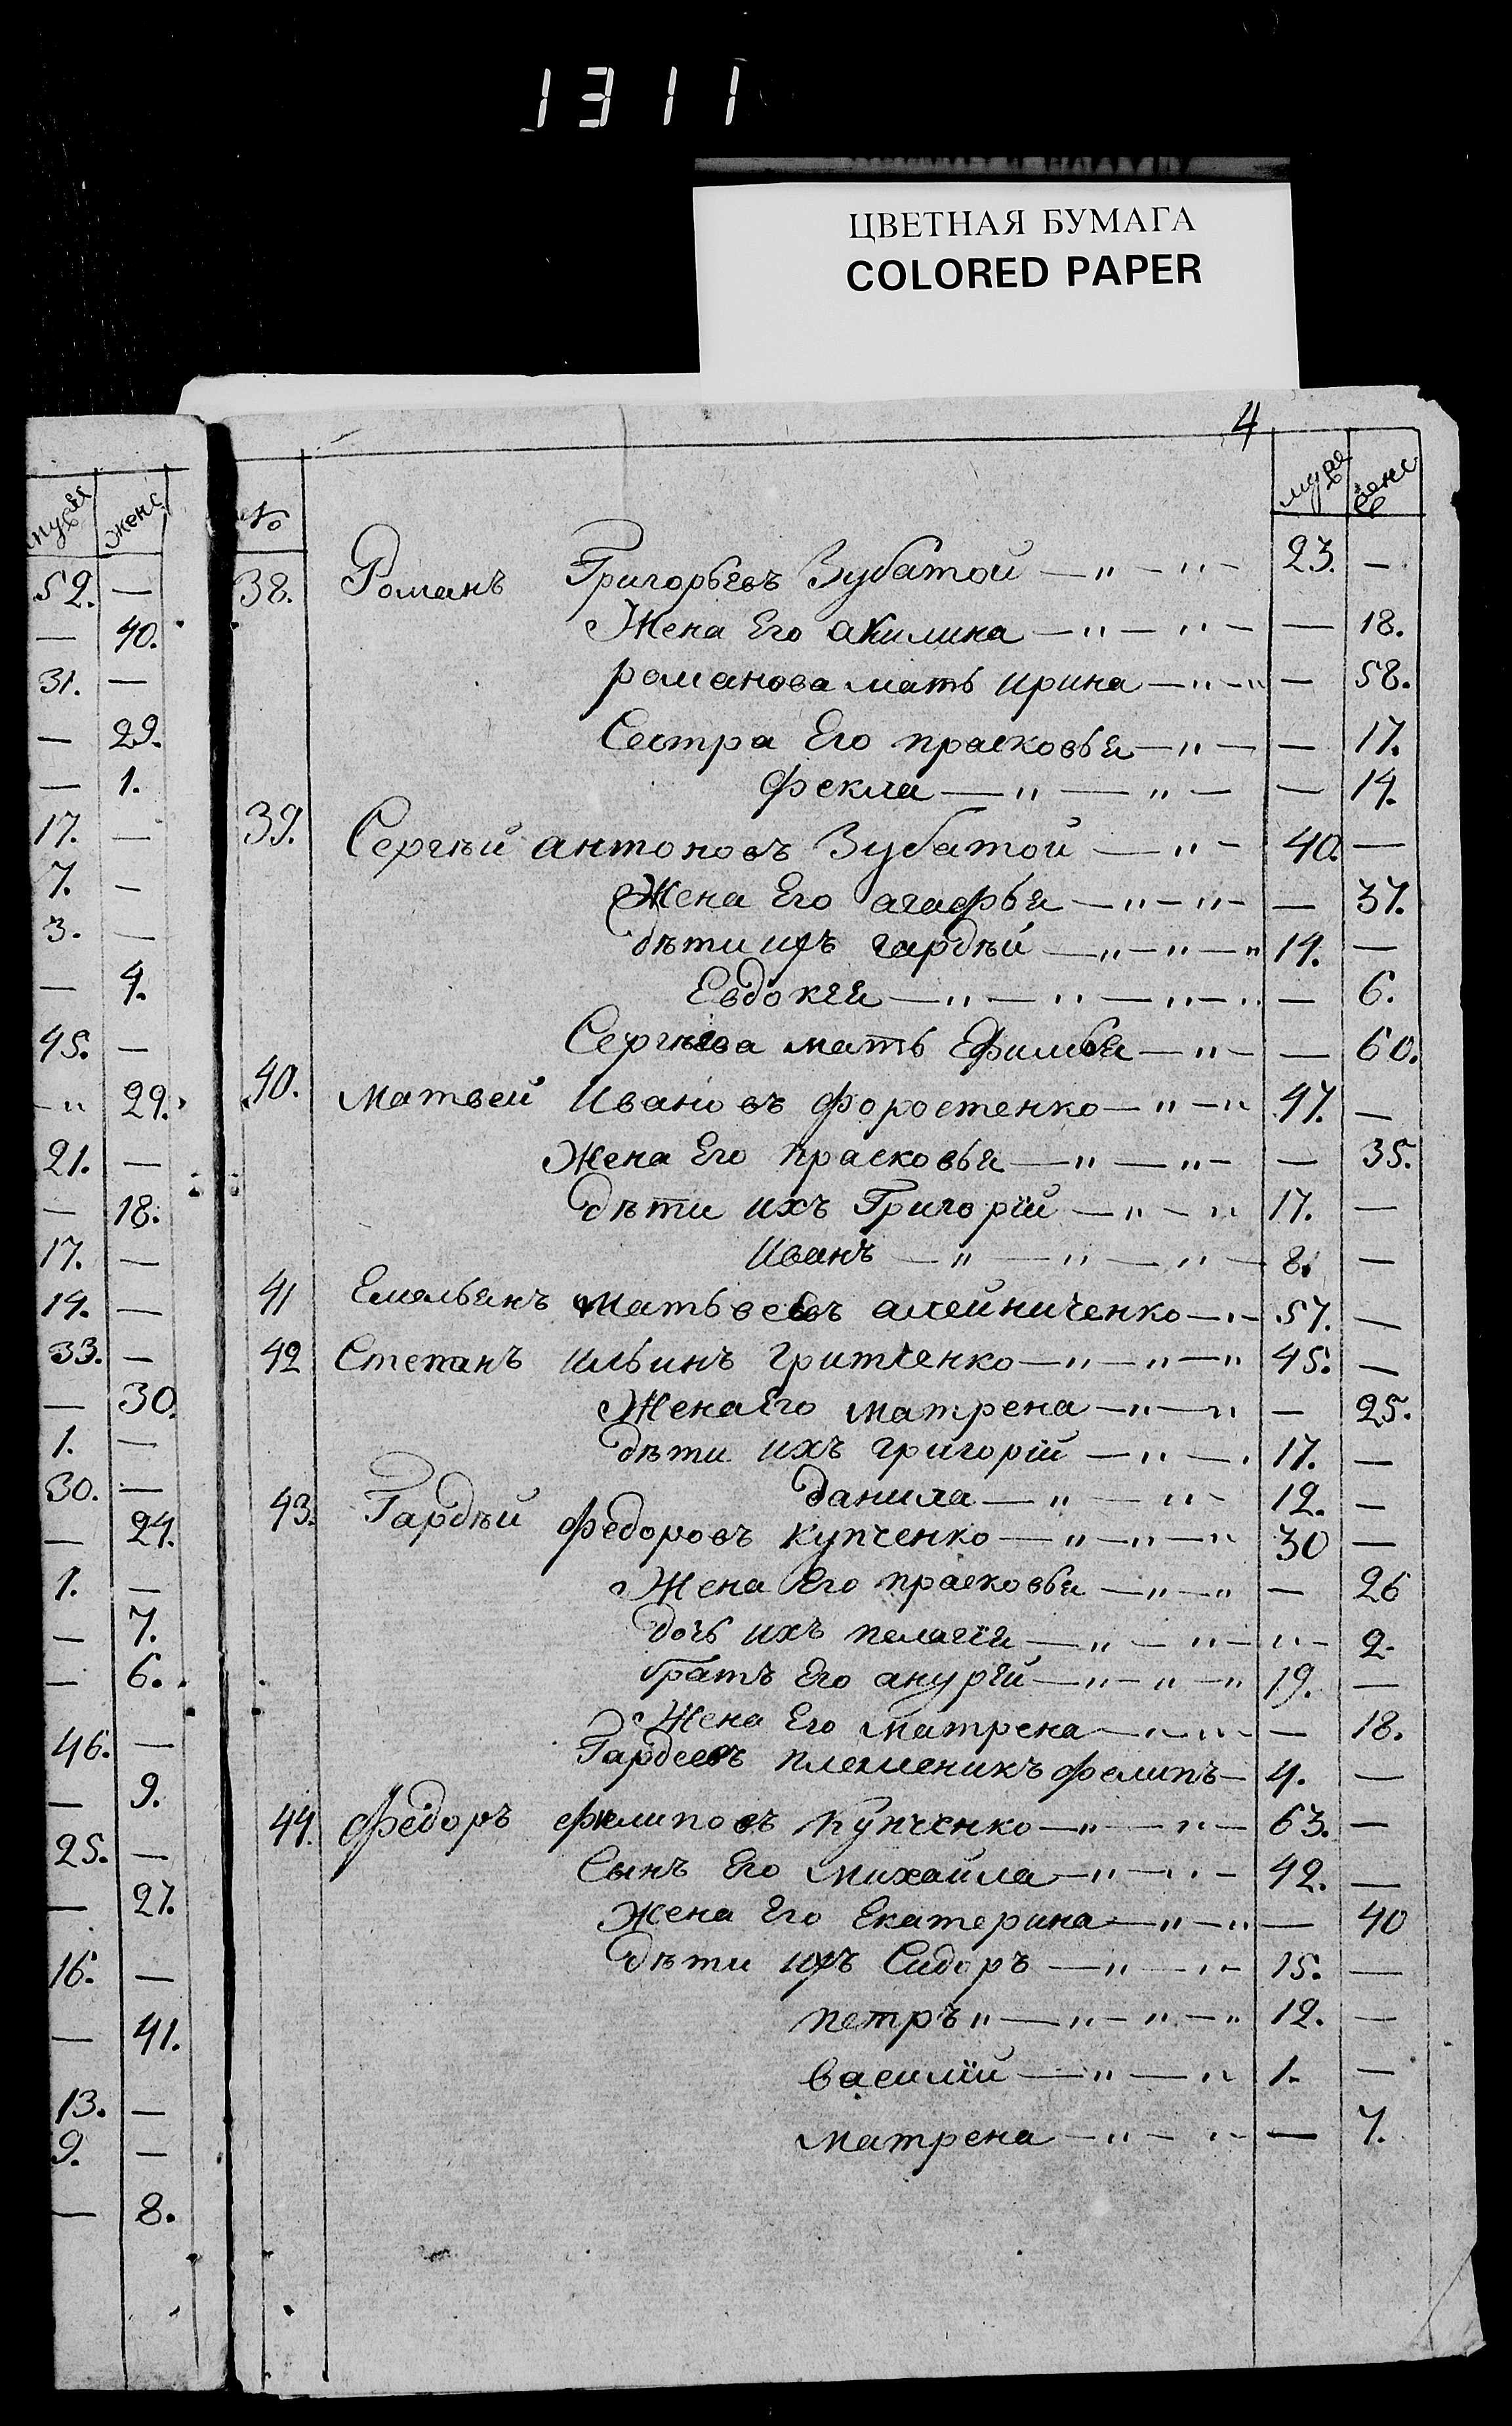 1311
ЦВЕТНАЯ БУМАГА
COLORED PAPER
4
муж женс
52. —
— 40.
31. —
— 29.
— 1.
17. —
7. —
3. —
— 4.
45. —
— " 29.
21. —
— 18.
17. —
14. —
33. —
— 30.
1. —
30. —
— 24.
1. —
— 7.
— 6.
46. —
— 9.
25. —
— 27.
16. —
— 41.
13. —
9. —
— 8.
№ муж женс
38. Романъ Григорьевъ Зубатой — " — " — 23. —
Жена Его акилина — " — " — — 18.
романова мать ирина — " — " — 58.
Сестра Его прасковья — " — — 17.
фекла — " — " — — 14.
39. Сергѣй антоновъ Зубатой — " — 40. —
Жена Его агафья — " — " — — 37.
дѣти ихъ гардѣй — " — " — " 14. —
Евдокия — " — " — " — " — 6.
Сергѣева мать Ефимья — " — — 60.
40. Матвей Ивановъ форостенко — " — " 47. —
Жена Его прасковья — " — " — — 35.
дѣти ихъ Григорїй — " — " 17. —
иванъ — " — " — " — 8. —
41 Емельянъ Матьвеевъ алейниченко — " — 57. —
42 Степанъ ильинъ гритченко — " — " — " 45. —
Жена Его матрена — " — " — 25.
дѣти ихъ григорїй — " — . 17. —
данила — " — " — 12. —
43. Гардѣй федоровъ купченко — " — " — " 30 —
Жена Его прасковья — " — " — 26
дочь ихъ пелагїя — " — " — " — 2.
братъ Его анурїй — " — " — " 19. —
Жена Его матрена — " — " — — 18.
Гардеевъ племеникъ филипъ — 4. —
44. федоръ филиповъ купченко — " — " — 63. —
Сынъ Его михайла — " — " — 42. —
Жена Его Екатерина — " — " — 40
дѣти ихъ Сидоръ — " — " — 15. —
петръ " — " — " — " 12. —
василїй — " — " 1. —
матрена — " — " — — 7.